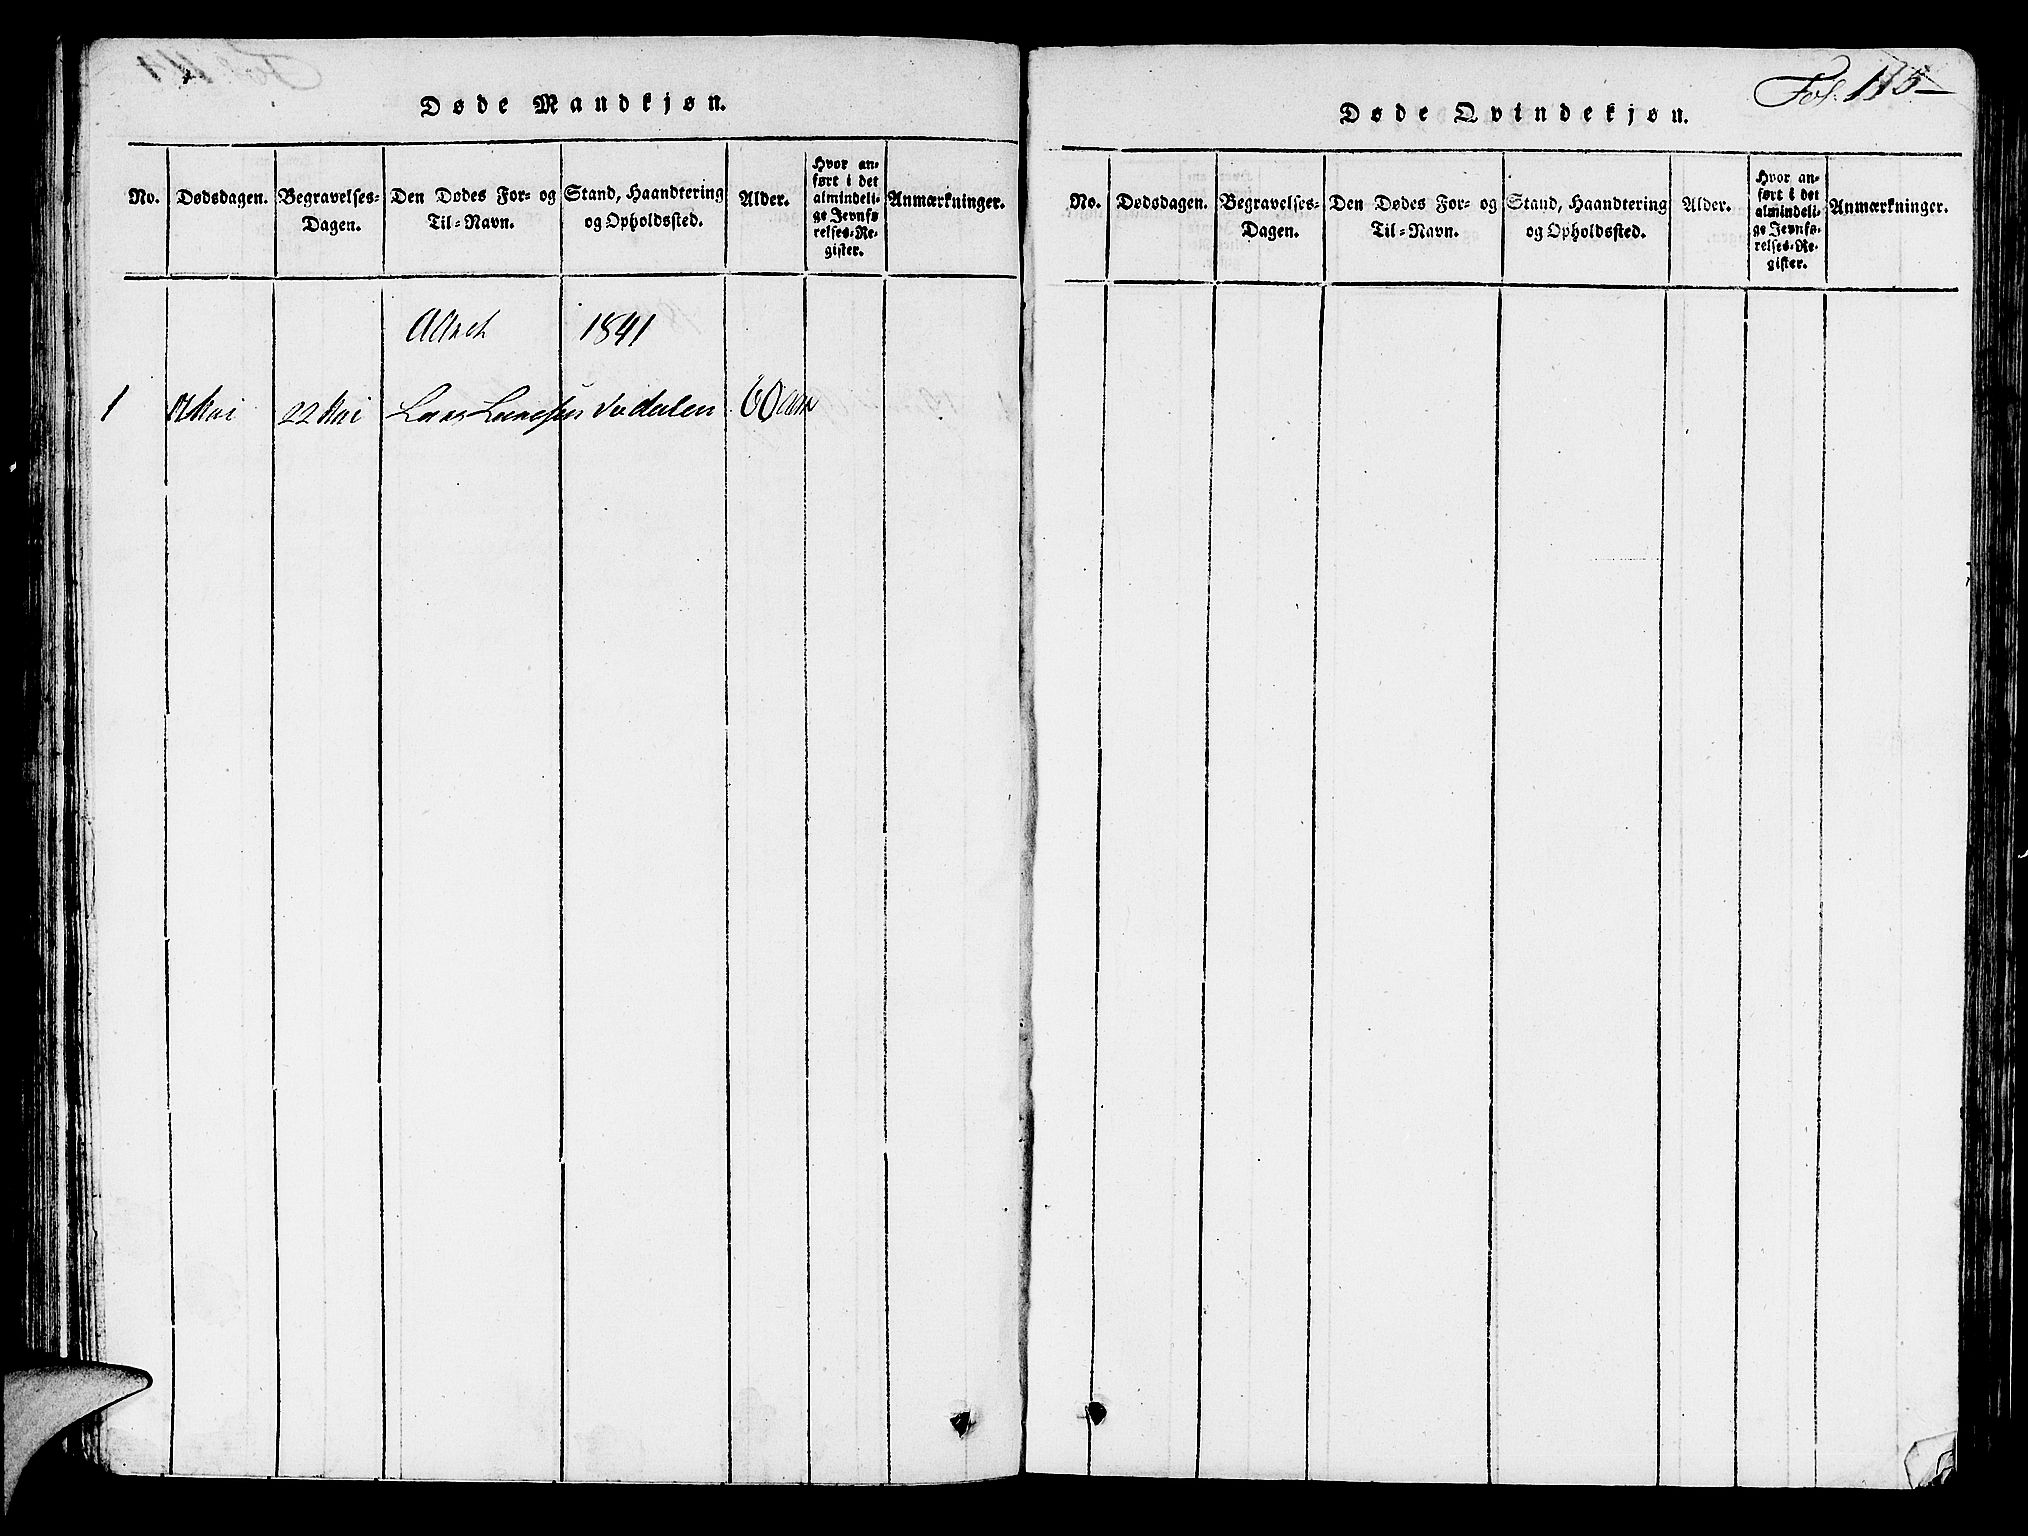 Døde Mandkjøn.
No. Dødsdagen. Begravelses-Dagen. Den Dødes For- og Til-Navn. Stand, Haandtering og Opholdssted. Alder. Hvor anført i det almindelige Jevnførelses-Register. Anmærkninger.
Aaret 1841
1 17 Mai 22 Mai Lars Larssen Dodalen 60 aar
Fol. 115
Døde Qvindekjøn.
No. Dødsdagen. Begravelses-Dagen. Den Dødes For- og Til-Navn. Stand, Haandtering og Opholdssted. Alder. Hvor anført i det almindelige Jevnførelses-Register. Anmærkninger.